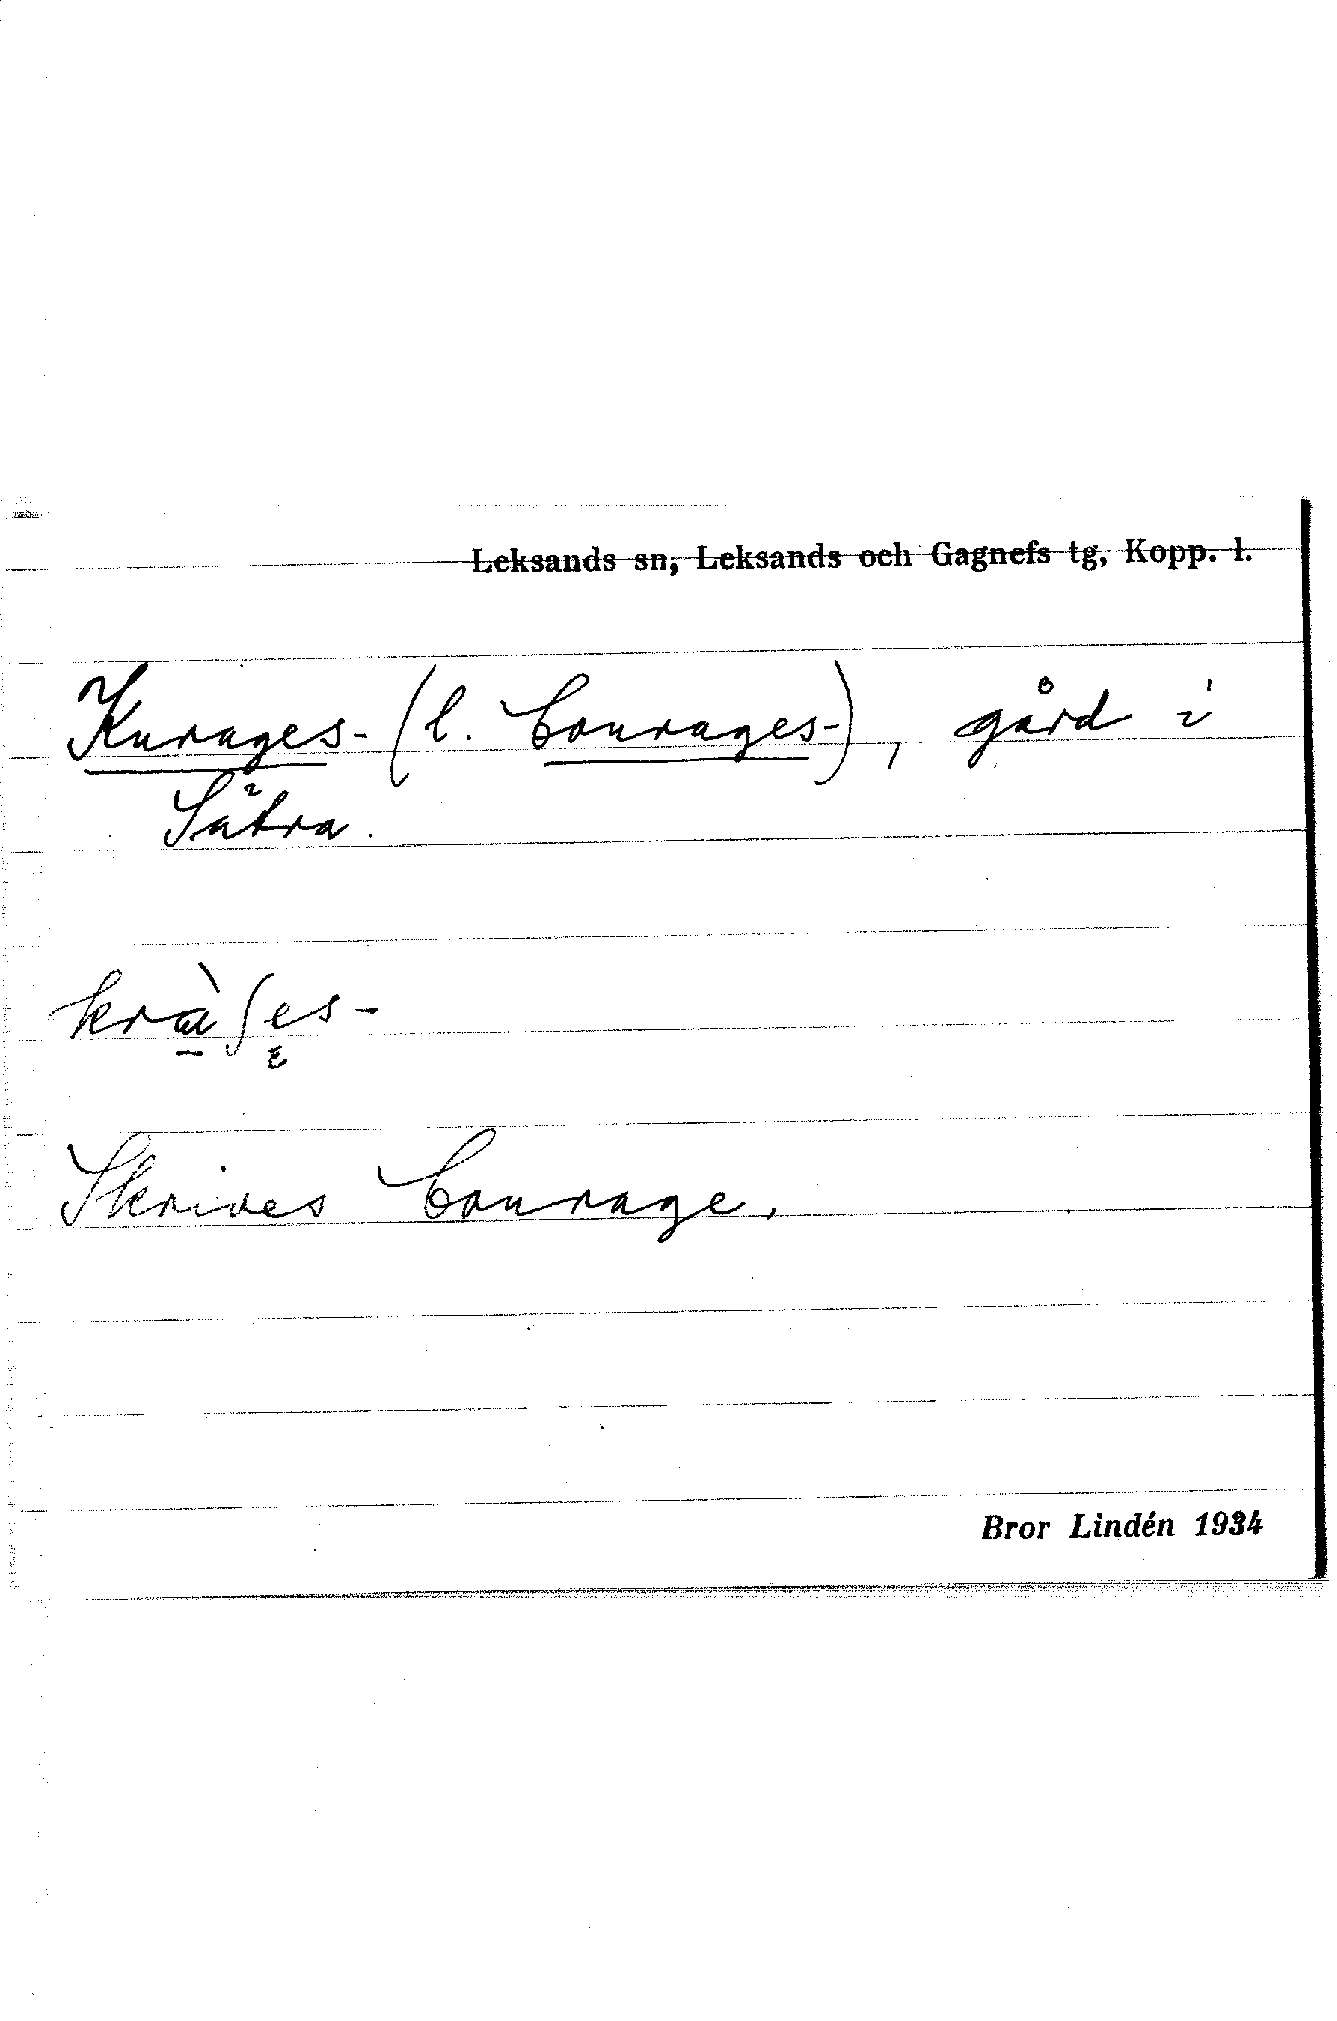 Leksands sn, Leksands och Gagnefs tg, Kopp. l.
Kurages- (l. Courages-), gård i
Sätra.
kràʃes-
Skrives Courage.
Bror Lindén 1934